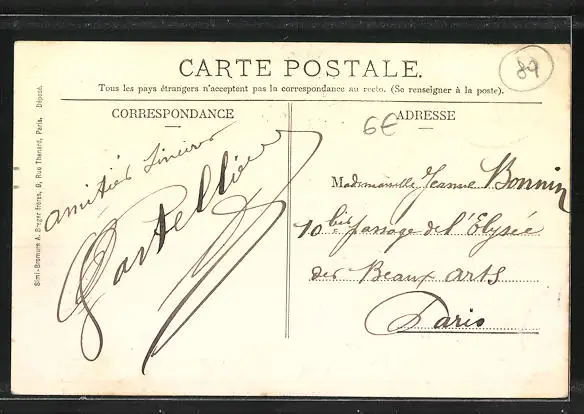 CARTE POSTALE.
89
Tous les pays étrangers n'acceptent pas la correspondance au recto. (Se renseigner à la poste).
CORRESPONDANCE
amitiés sincères
ADRESSE
6€
Mademoiselle Jeanne Bonnin
10 bis passage de l'Elysée
des Beaux arts
Paris
Simi-Bromure A. Breger frères, 9, Rue Thénard, Paris. Déposé.